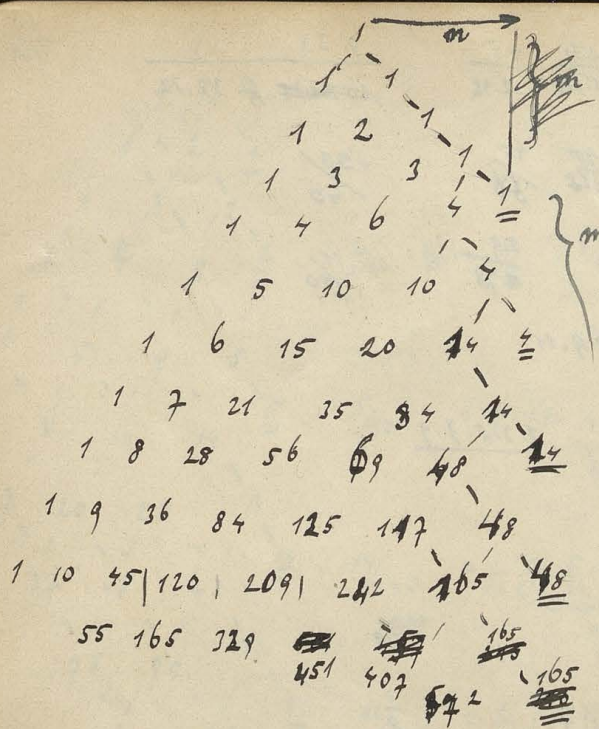 1 n
1 1 m
1 2 1
1 3 3 1
1 4 6 4 1
m
1 5 10 10 4
1 6 15 20 14 4
1 7 21 35 34 14
1 8 28 56 69 48 14
1 9 36 84 125 117 48
1 10 45 120 209 242 165 48
55 165 329 165
451 407 165
572